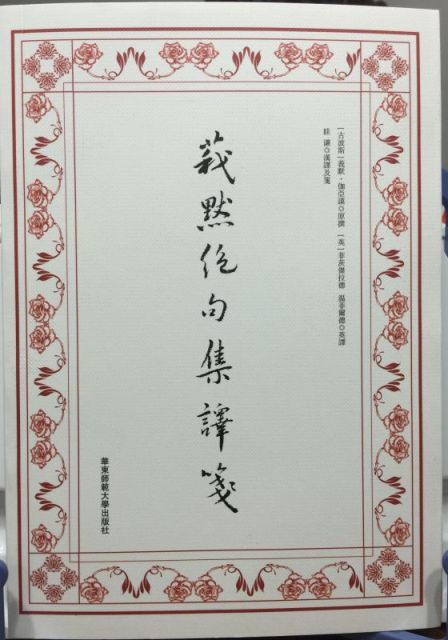 ［古波斯］莪默·伽亞謨◎原撰　［英］菲茨傑拉德　溫菲爾德◎英譯
眭　謙◎漢譯及箋
莪默絕句集譯箋
華東師範大學出版社